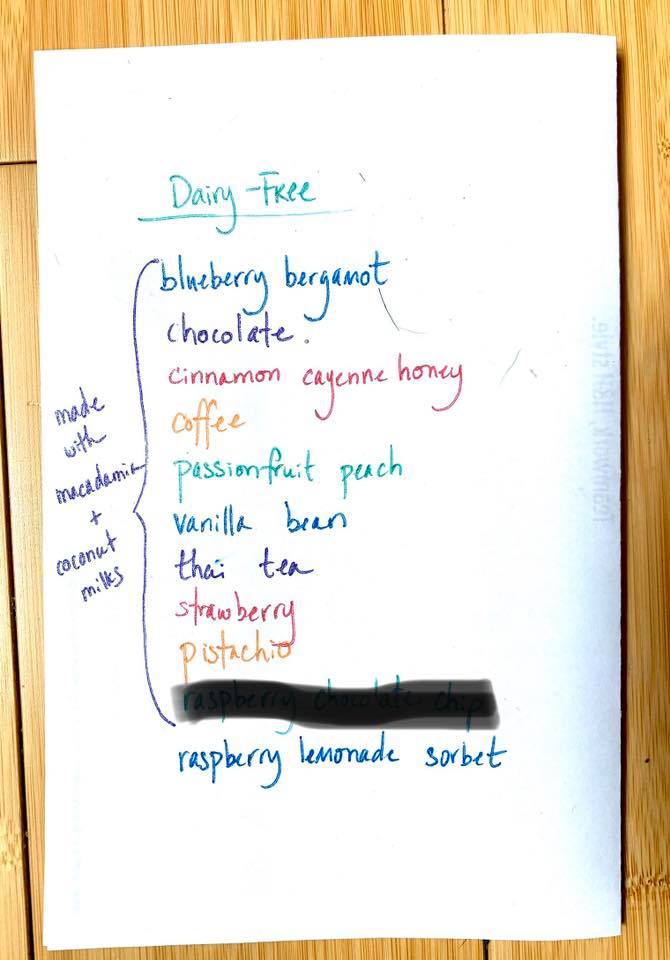 Dairy-Free
blueberry bergamot
chocolate.
cinnamon cayenne honey
coffee
passionfruit peach
vanilla bean
thai tea
strawberry
pistachio
raspberry chocolate chip
raspberry lemonade sorbet
made
with
macadamia
+
coconut
milks